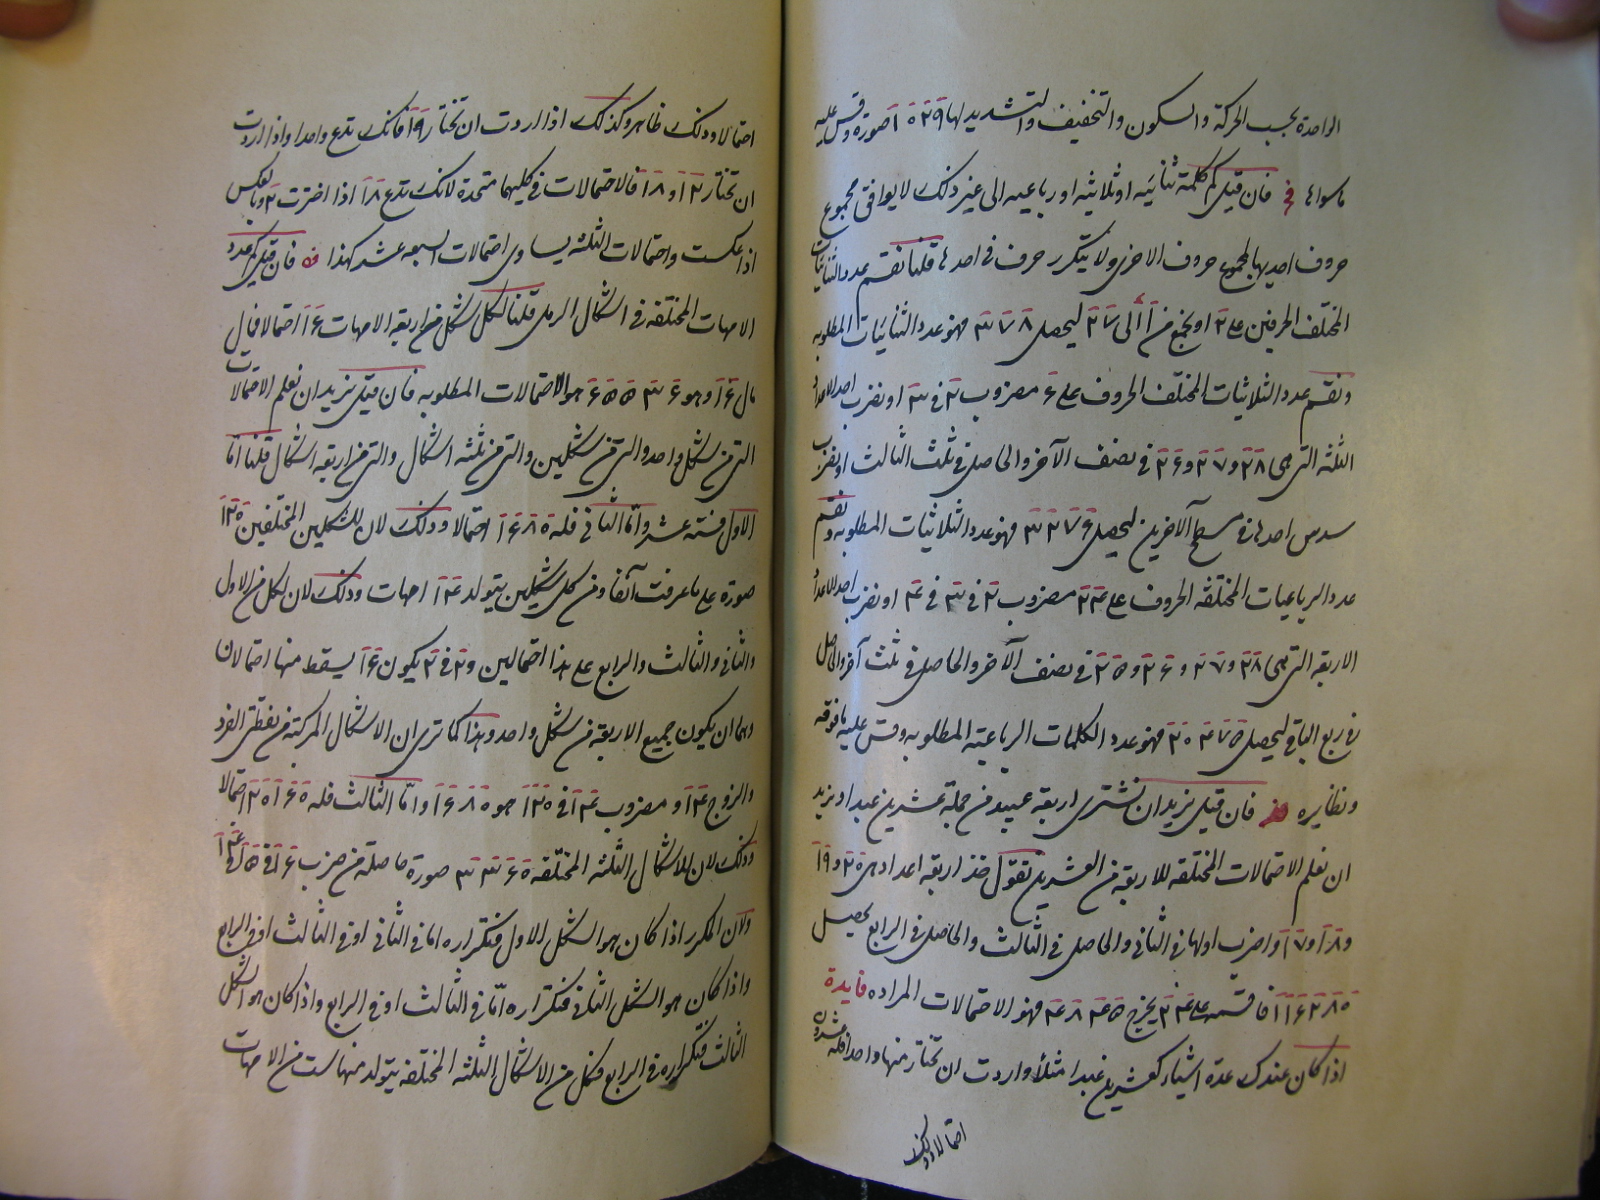 الواحدة بحسب الحركة والسكون والتخفيف والتشديد لها ۲۹ صورة وقس عليه
ماسواها فان قيل كم كلمة ثنائيه او ثلاثيه او رباعيه الى غير ذلك لا يوافق مجموع
حروف احديها لمجموع حروف الاخرى ولا يتكرر حرف في احدها قلنا نقسم عدد الثنائيات
المختلف الحرفين على ۲ او نجمع من ۱ الى ۲۷ ليحصل ۳۷۸ فهو عدد الثنائيات المطلوبه
ونقسم عدد الثلاثيات المختلف الحروف على ۶ مضروب ۲ فى ۳ او نضرب احد الاعداد
الثلثه التى هى ۲۸ و ۲۷ و ۲۶ فى نصف الآخر والحاصل فى ثلث الثالث او نضرب
سدس احدها فى مسطح الآخرين ليحصل ۳۲۷۶ فهو عدد الثلاثيات المطلوبه ونقسم
عدد الرباعيات المختلفة الحروف على ۲۴ مضروب ۲ فى ۳ فى ۴ او نضرب احد الاعداد
الاربعه التى هى ۲۸ و ۲۷ و ۲۶ و ۲۵ فى نصف الآخر والحاصل فى ثلث آخر والحاصل
فى ربع الباقى ليحصل ۲۰۴۷۵ فهو عدد الكلمات الرباعيه المطلوبه وقس عليه مافوقه
ونظايره فان قيل نريد ان نشترى اربعة عبيد من جملة عشرين عبدا ونريد
ان نعلم الاحتمالات المختلفه للاربعة من العشرين نقول خذ اربعة اعداد هى ۲۰ و ۱۹
و ۱۸ و ۱۷ واضرب اولها فى الثانى والحاصل فى الثالث والحاصل فى الرابع يحصل
۱۱۶۲۸۰ فاقسمه على ۲۴ يخرج ۴۸۴۵ فهو الاحتمالات المراده فايدة
اذا كان عندك عدة اشياء كعشرين عبدا مثلا واردت ان تختار منها واحدا فله عشرون
احتمالا وذلك
احتمالا وذلك ظاهر وكذلك اذا اردت ان تختار ۱۹ فانك تدع واحدا واذا اردت
ان تختار ۲ او ۱۸ فالاحتمالات فى كليهما متحدة لانك تدع ۱۸ اذا اخترت ۲ وبالعكس
اذا عكست واحتمالات الثلثه يساوى احتمالات السبعه عشر كهذا فان قيل كم عدد
الامهات المختلفه فى اشكال الرمل قلنا لكل شكل من اربعة الامهات ۱۶ احتمالا فمال
مال ۱۶ وهو ۶۵۵۳۶ هو الاحتمالات المطلوبه فان قيل نريد ان نعلم الاحتمالات
التى من شكل واحد والتى من شكلين والتى من ثلثه اشكال والتى من اربعه اشكال قلنا اما
الاول فستة عشر واما الثانى فله ۱۶۸۰ احتمالا وذلك لان للشكلين المختلفين ۱۲۰
صورة على ما عرفت آنفا ومن كل شكلين يتولد ۱۴ امهات وذلك لان لكل من الاول
والثانى والثالث والرابع على هذا احتمالين و ۲ فى ۲ يكون ۱۶ يسقط منها احتمالان
وهما ان يكون جميع الاربعة من شكل واحد وهذا كما ترى ان الاشكال المركبة من نقطتى الفرد
والزوج ۱۴ و مضروب ۱۴ فى ۱۲۰ هو ۱۶۸۰ واما الثالث فله ۲۰۱۶۰ احتمالا
وذلك لان للاشكال الثلثه المختلفه ۳۳۶۰ صورة حاصلة من ضرب ۱۶ فى ۱۵ فى ۱۴
ولان المكرر اذا كان هو الشكل الاول فتكراره اما فى الثانى او فى الثالث او فى الرابع
واذا كان هو الشكل الثانى فتكراره اما فى الثالث او فى الرابع واذا كان هو الشكل
الثالث فتكراره فى الرابع فكل من الاشكال الثلثه المختلفه يتولد منها ست من الامهات